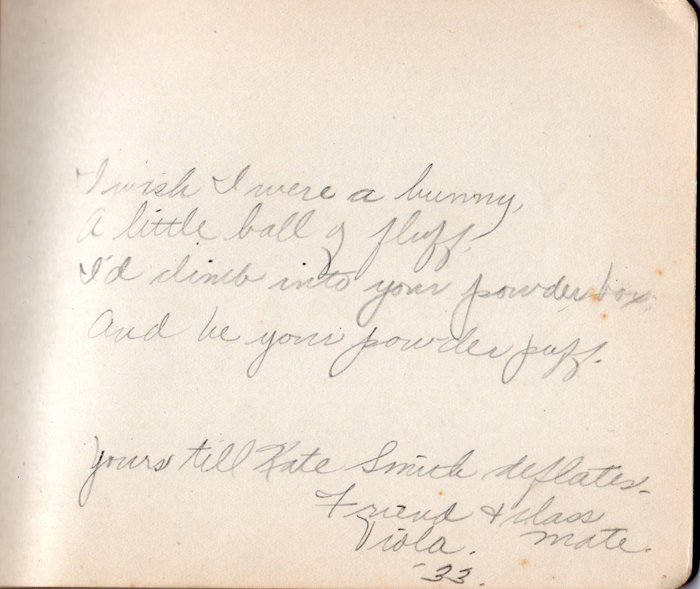 I wish I were a bunny,
A little ball of fluff,
I'd climb into your powder box
And be your powder puff.
Yours till Kate Smith deflates.
Friend & class
Viola. mate.
'33.